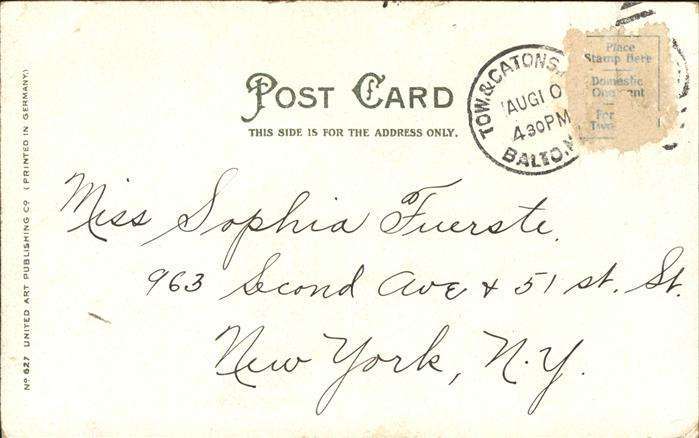 POST CARD
THIS SIDE IS FOR THE ADDRESS ONLY.
TOW. & CATONS.
AUG 10
4 30 PM
BALTO. M
Place
Stamp Here
Domestic
One
For
Miss Sophia Fuerste.
963 Second Ave & 51 st. St.
New York, N.Y.
No 627 UNITED ART PUBLISHING Co (PRINTED IN GERMANY.)